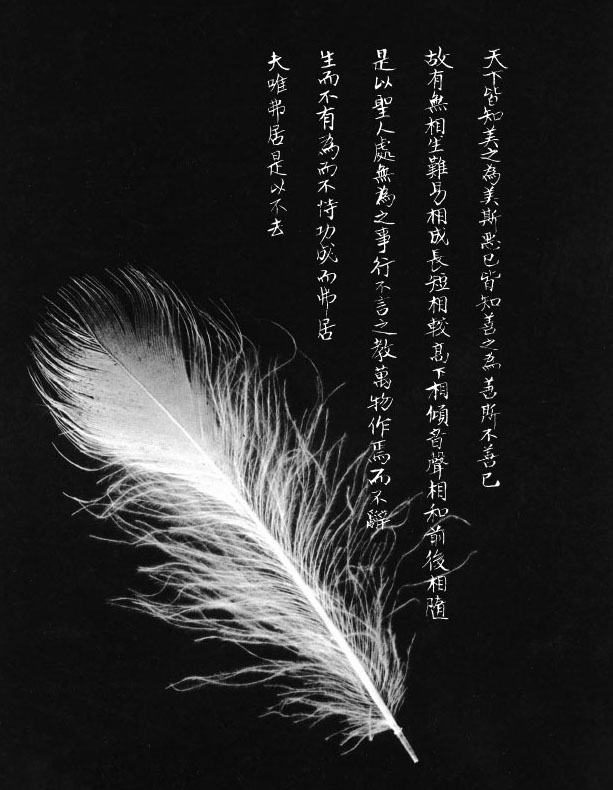 天下皆知美之為美斯惡已皆知善之為善斯不善已
故有無相生難易相成長短相較高下相傾音聲相和前後相隨
是以聖人處無為之事行不言之教萬物作焉而不辭
生而不有為而不恃功成而弗居
夫唯弗居是以不去